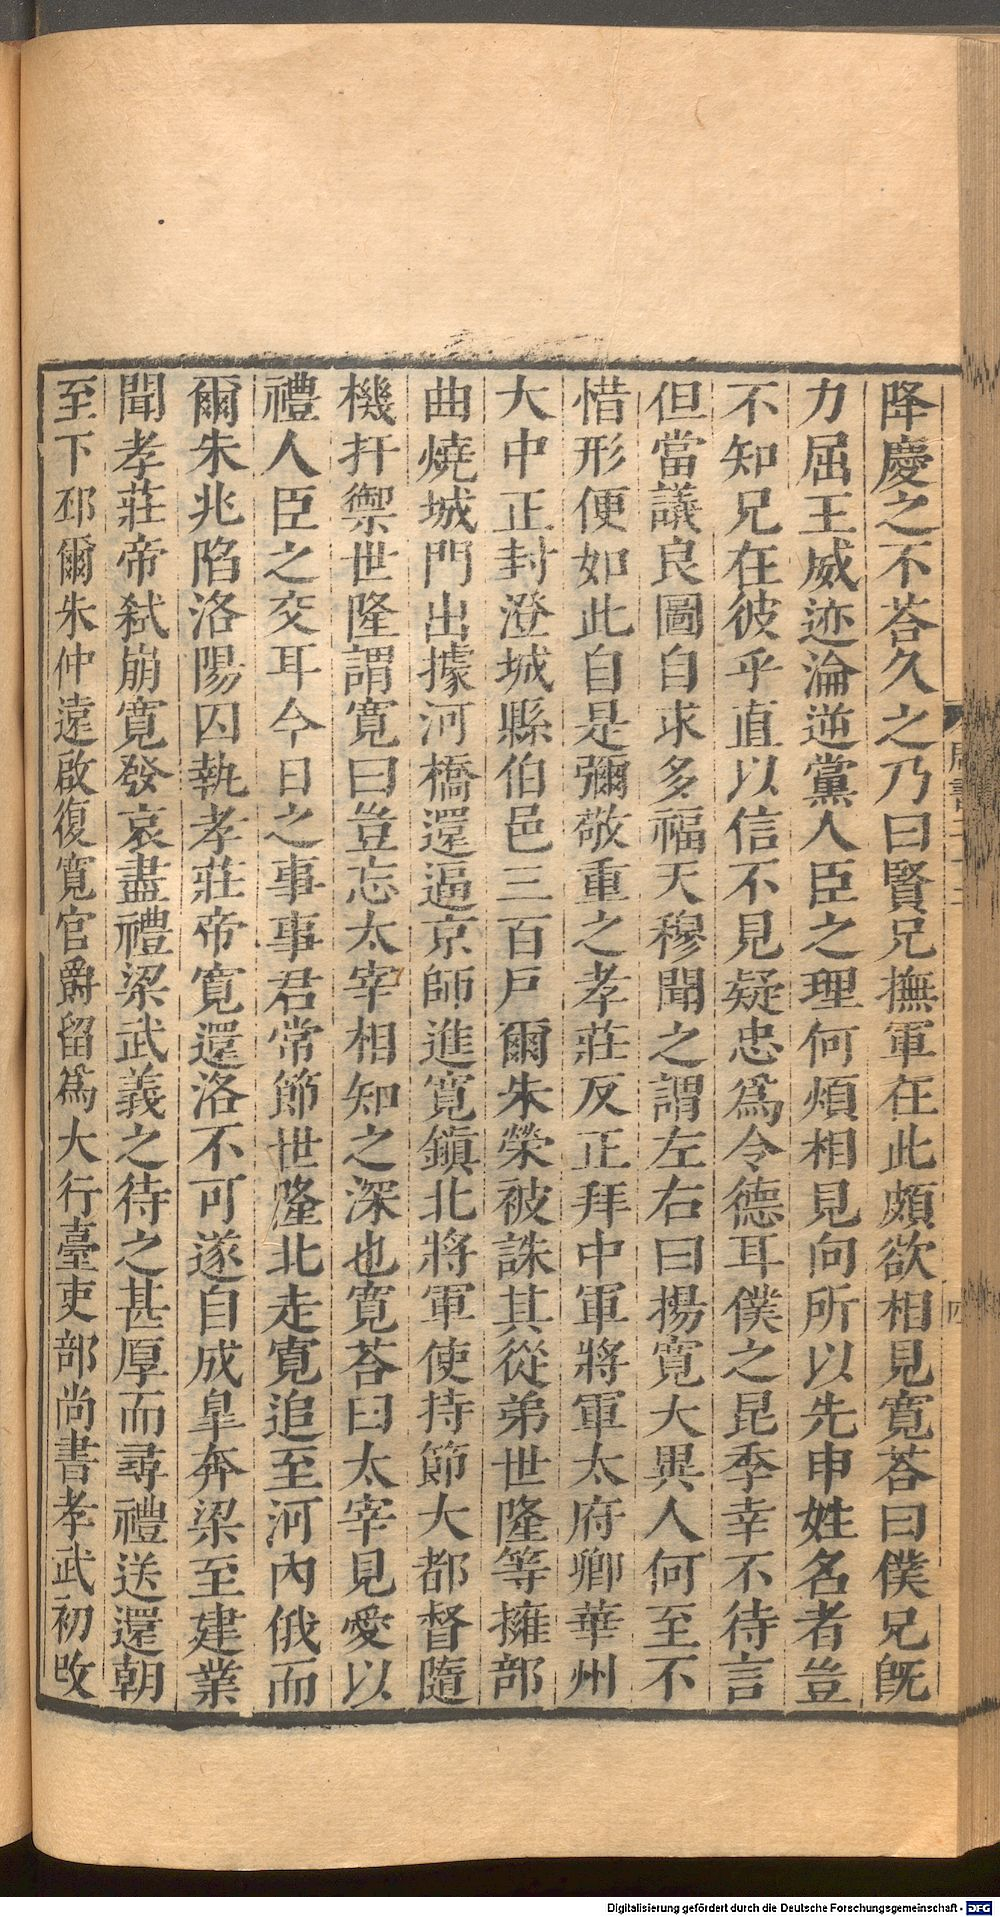 降慶之不荅久之乃曰賢兄撫軍在此頗欲相見寛荅曰僕兄旣
力屈王威迹淪逆黨人臣之理何煩相見向所以先申姓名者豈
不知兄在彼乎直以信不見疑忠爲令德耳僕之昆季幸不待言
但當議良圖自求多福天穆聞之謂左右曰揚寛大異人何至不
惜形便如此自是彌敬重之孝莊反正拜中軍將軍太府卿華州
大中正封澄城縣伯邑三百戸爾朱榮被誅其從弟世隆等擁部
曲燒城門出據河橋還逼京師進寛鎭北將軍使持節大都督隨
機扞禦世隆謂寛曰豈忘太宰相知之深也寛荅曰太宰見愛以
禮人臣之交耳今日之事事君常節世隆北走寛追至河內俄而
爾朱兆陷洛陽囚執孝莊帝寛還洛不可遂自成皐奔梁至建業
聞孝莊帝弑崩寛發哀盡禮梁武義之待之甚厚而尋禮送還朝
至下邳爾朱仲遠啟復寛官爵留爲大行臺吏部尚書孝武初改
四
Digitalisierung gefördert durch die Deutsche Forschungsgemeinschaft - DFG